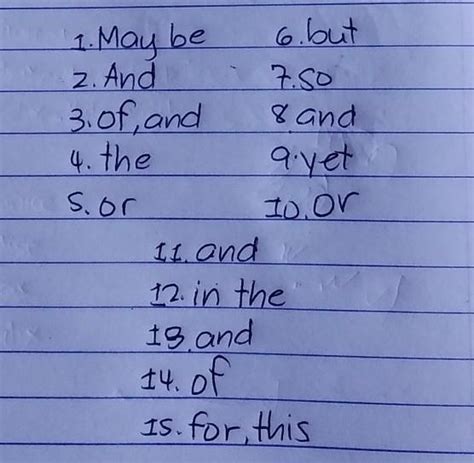 1. May be
2. And
3. of, and
4. the
5. or
6. but
7. so
8 and
9. yet
10. or
11. and
12. in the
13. and
14. of
15. for, this